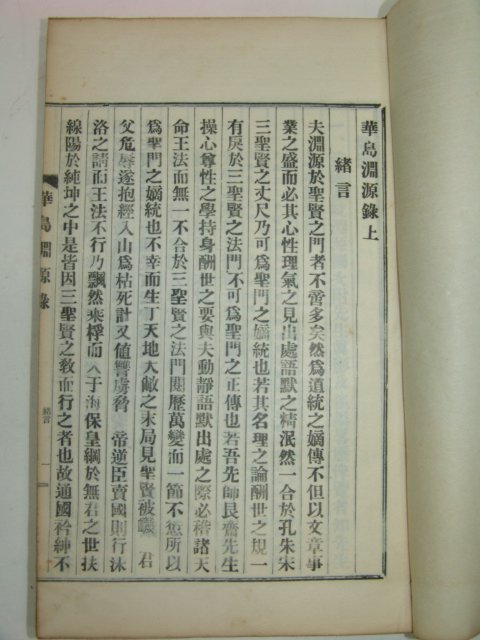 華島淵源錄上
緖言
夫淵源於聖賢之門者不啻多矣然爲道統之嫡傳不但以文章事
業之盛而必其心性理氣之見出處語默之精泯然一合於孔朱宋
三聖賢之丈尺乃可爲聖門之嫡統也若其名理之論酬世之規一
有戾於三聖賢之法門不可爲聖門之正傳也若吾先師艮齋先生
操心尊性之學持身酬世之要與夫動靜語默出處之際必稽諸天
命王法而無一不合於三聖賢之法門閱歷萬變而一節不愆所以
爲聖門之嫡統也不幸而生丁天地大敵之末局見聖賢被 君
父危辱遂抱經入山爲枯死計又値讐虜脅 帝逆臣賣國則行沐
洛之請而王法不行乃飄然乘桴而入于海保皇綱於無君之世扶
線陽於純坤之中是皆因三聖賢之敎而行之者也故通國衿紳不
華島淵源錄
緖言
一